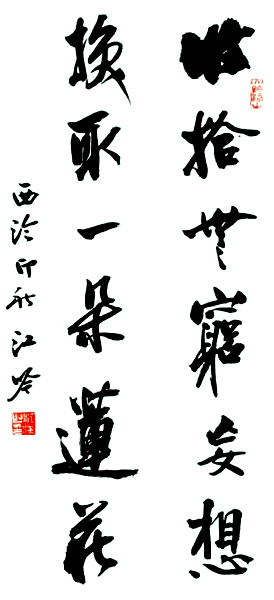 收拾無窮妄想
換取一朵蓮花
西泠印社江吟